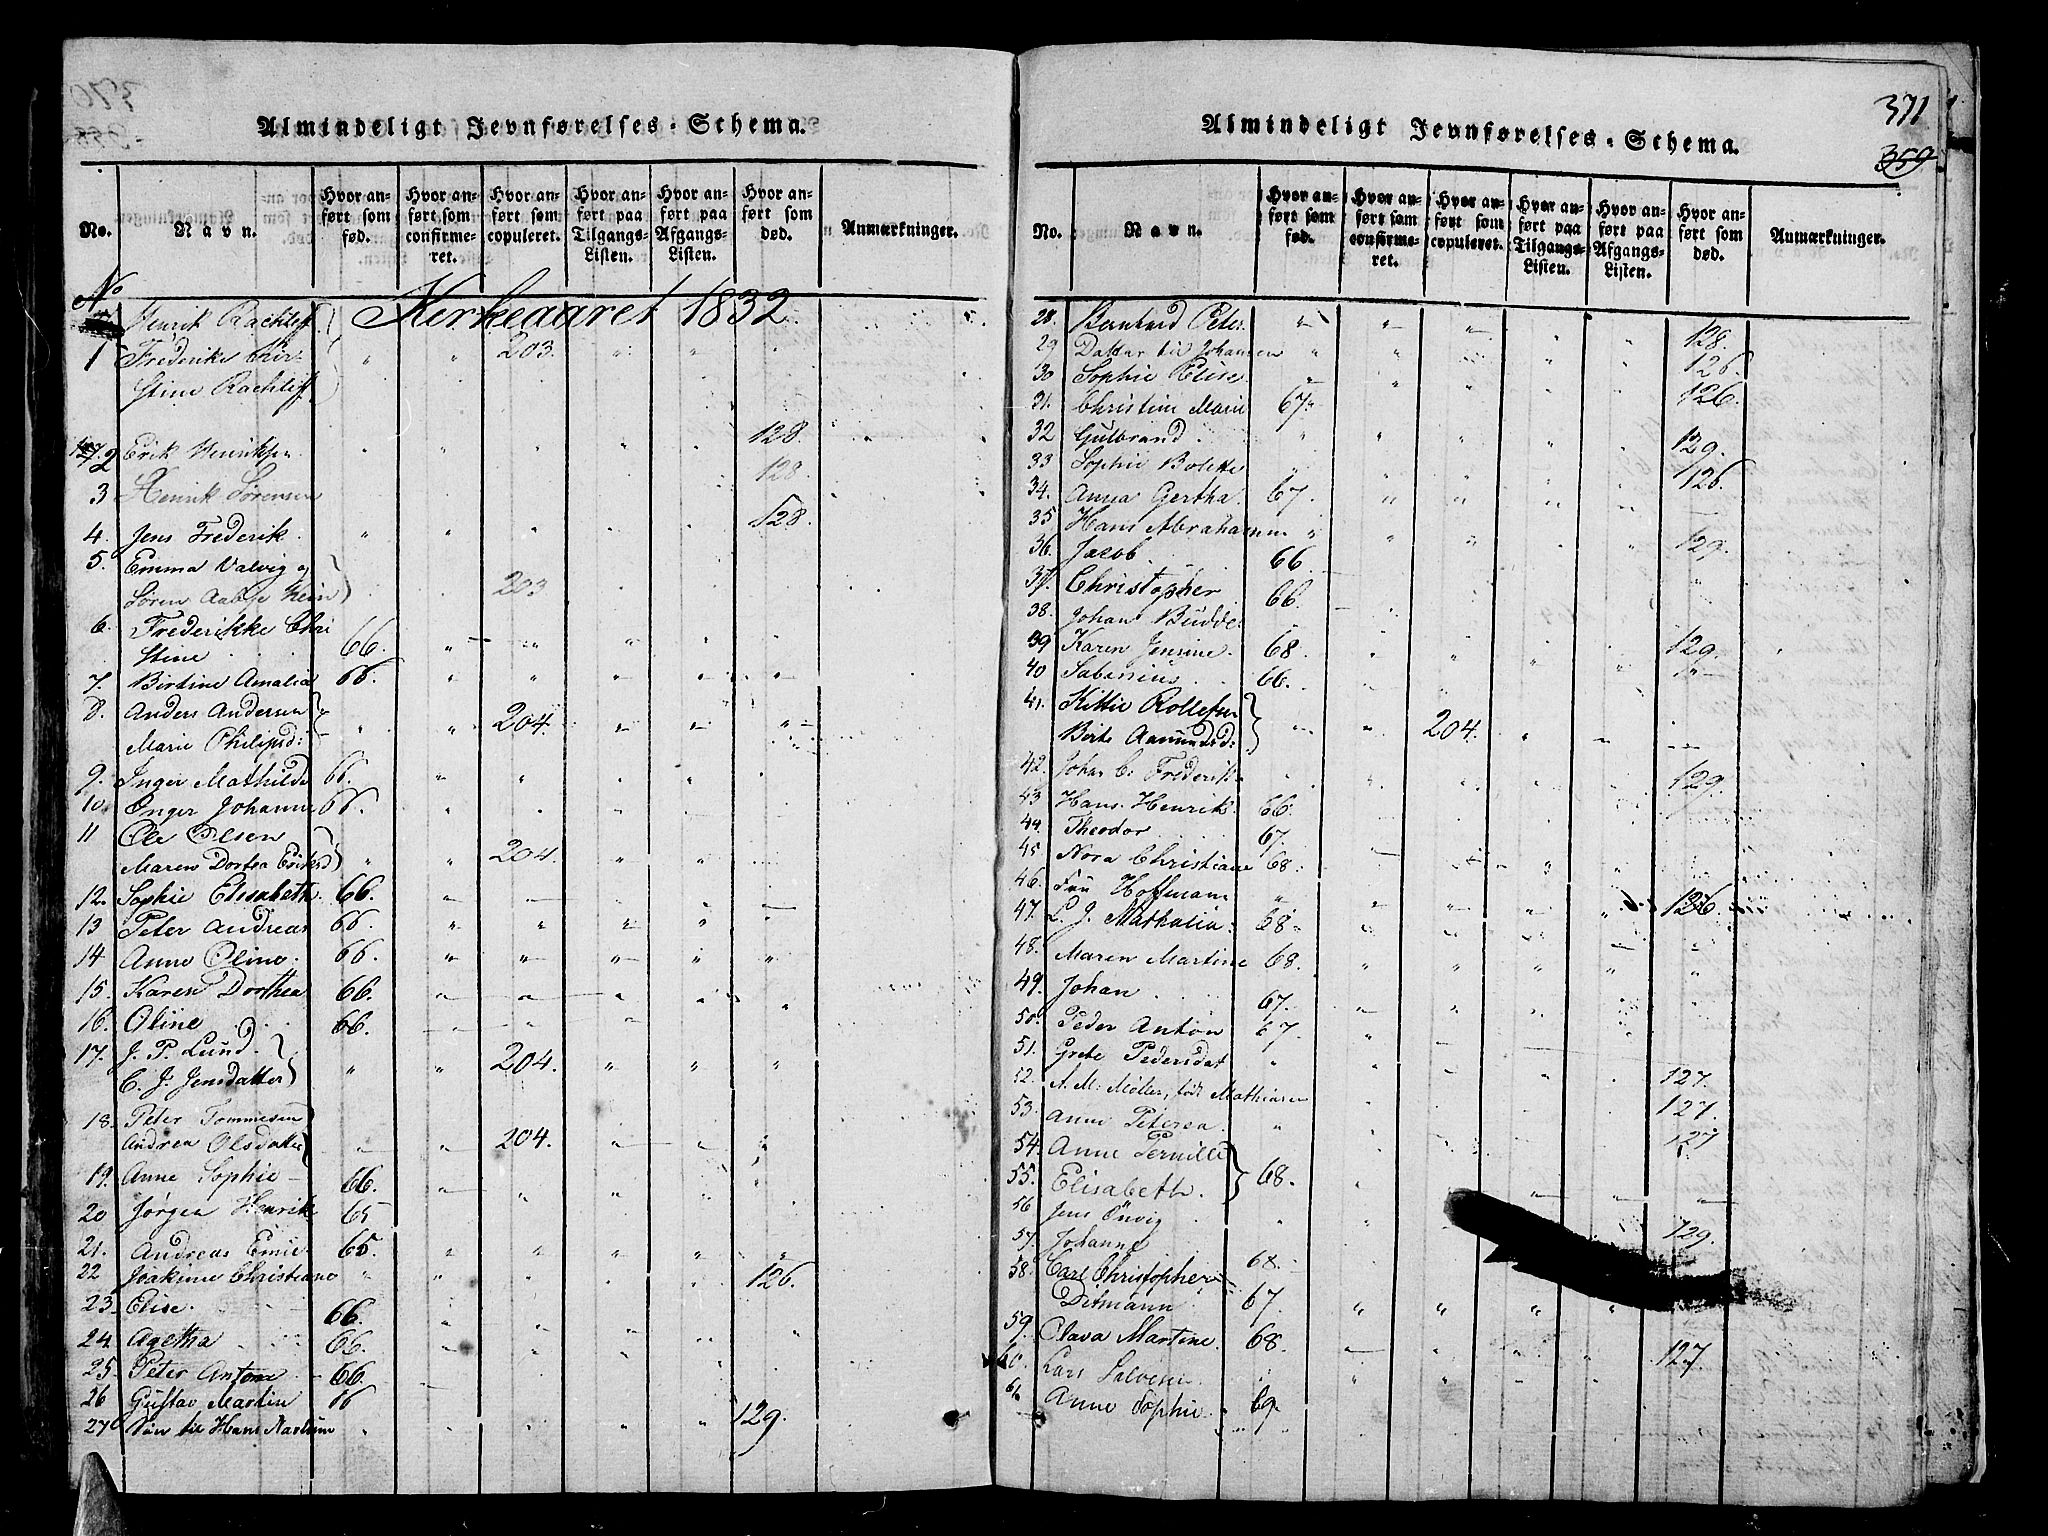 Almindeligt Jevnførelses-Schema.
No. Navn. Hvor anført som fød. Hvor anført som confirmeret. Hvor anført som copuleret. Hvor anført paa Tilgangs-Listen. Hvor anført paa Afgangs-Listen. Hvor anført som død. Anmærkninger.
No Kirkeaaret 1832
Henrik Rachløff
1 Frederike Chri- " " 203. " "
stine Rachløff
2 Erik Henriksen 128.
3 Henrik Sørensen 128.
4. Jens Frederik. " " " 128.
5. Emma Valvig og
Søren Aabye Hein 203
6. Frederikke Chri
stine 66.
7. Birtine Amalia 66.
8. Anders Andersen
Marie Philipsd: 204.
9. Inger Mathilde 66.
10. Inger Johanne 66.
11 Ole Olsen
Maren Dortea Eriksd 204.
12. Sophie Elisabeth. 66.
13 Peter Andreas 66.
14 Anne Oline. 66.
15. Karen Dorthea 66.
16. Oline 66.
17. J. P. Lund.
C. J. Jensdatter 204.
18. Peter Tommesen
Andrea Olsdatter 204.
19. Anne Sophie 66.
20 Jørgen Henrik 65
21. Andreas Emil. 65.
22 Joakime Christiane 126.
23. Elise. 66.
24. Agetha 66.
25. Peter Anton 66.
26 Gustav Martin 66
27 Søn til Hans 129.
371
359
Almindeligt Jevnførelses-Schema.
No. Navn. Hvor anført som fød. Hvor anført som confirmeret. Hvor anført som copuleret. Hvor anført paa Tilgangs-Listen. Hvor anført paa Afgangs-Listen. Hvor anført som død. Anmærkninger.
28. Bernhard Peter. 128.
29 Datter til Johansen 126.
30 Sophie Elise. 126.
31. Christine Marie 67.
32 Gulbrand. 129.
33 Sophie Bolette 126.
34. Anna Gertha. 67.
35 Hans Abrahamsen 129.
36. Jacob. 66.
37. Christopher 66.
38. Johan Budde. 129.
39 Karen Jensine. 68.
40 Sabinius 66.
41. Kittil Rollefsen
Birte Aamundsd: 204.
42. Johan C. Frederik 129.
43 Hans Henrik. 66.
44. Theodor 67.
45 Nora Christiane 68.
46. Fru Hoffmann 126.
47. L. J. Mathalia. 68
48. Maren Martine 68.
49. Johan 67.
50. Peder Anton 67.
51. Grete Pedersdat 127.
52. A. M. Møller, født Mathiasen 127.
53. Anne Peterea 127
54. Anne Pernille
55. Elisabeth. 68.
56 Jens Onvig 129.
57. Johanne 68.
58. Carl Christopher
Ditmann 67.
59. Olava Martine. 68
60. Lars Salvesen 127.
61. Anne Sophie. 69.